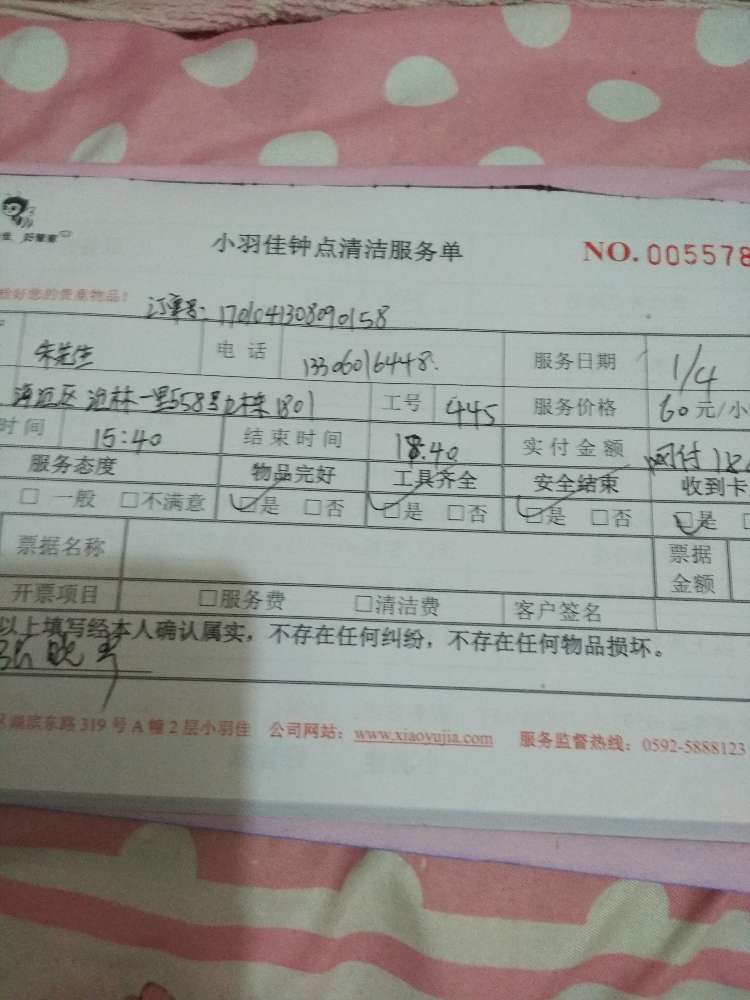 小羽佳钟点清洁服务单 NO. 005578
您的贵重物品！ 订单号：1701041308090158
朱先生 电话 13306016448 服务日期 1/4
海沧区 一里558号 1801 工号 445 服务价格 60元/小
时间 15:40 结束时间 18:40 实付金额 网付
服务态度 物品完好 工具齐全 安全结束 收到卡
□ 一般 □不满意 □是 □否 □是 □否 □是 □否 □是
票据名称 票据金额
开票项目 □服务费 □清洁费 客户签名
以上填写经本人确认属实，不存在任何纠纷，不存在任何物品损坏。
湖滨东路319号A幢2层小羽佳 公司网站：www.xiaoyujia.com 服务监督热线：0592-5888123